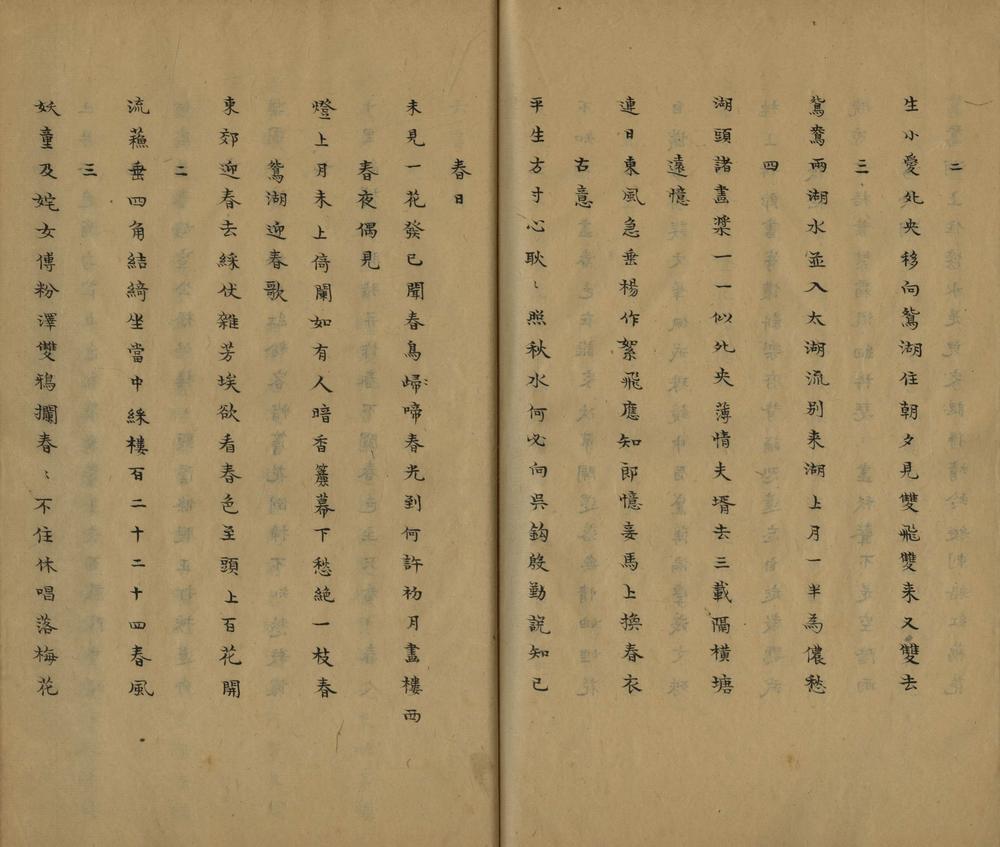 二
生小愛𠨍央移向鴛湖住朝夕見雙飛雙来又雙去
三
鴛鴦兩湖水並入太湖流別来湖上月一半為儂愁
四
湖頭諸畫槳一一似𠨍央薄情夫壻去三載隔橫塘
遠憶
連日東風急垂楊作絮飛應知郎憶妾馬上換春衣
古意
平生方寸心耿〻照秋水何必向吳鈎殷勤說知己
春日
未見一花發已聞春鳥歸啼春光到何許初月畫樓西
春夜偶見
燈上月未上倚闌如有人暗香簾幕下愁絕一枝春
鴛湖迎春歌
東郊迎春去綵仗雜芳埃欲看春色至頭上百花開
二
流蘓垂四角結綺坐當中綵樓百二十二十四春風
三
妖童及姹女傅粉澤雙鴉攔春〻不住休唱落梅花